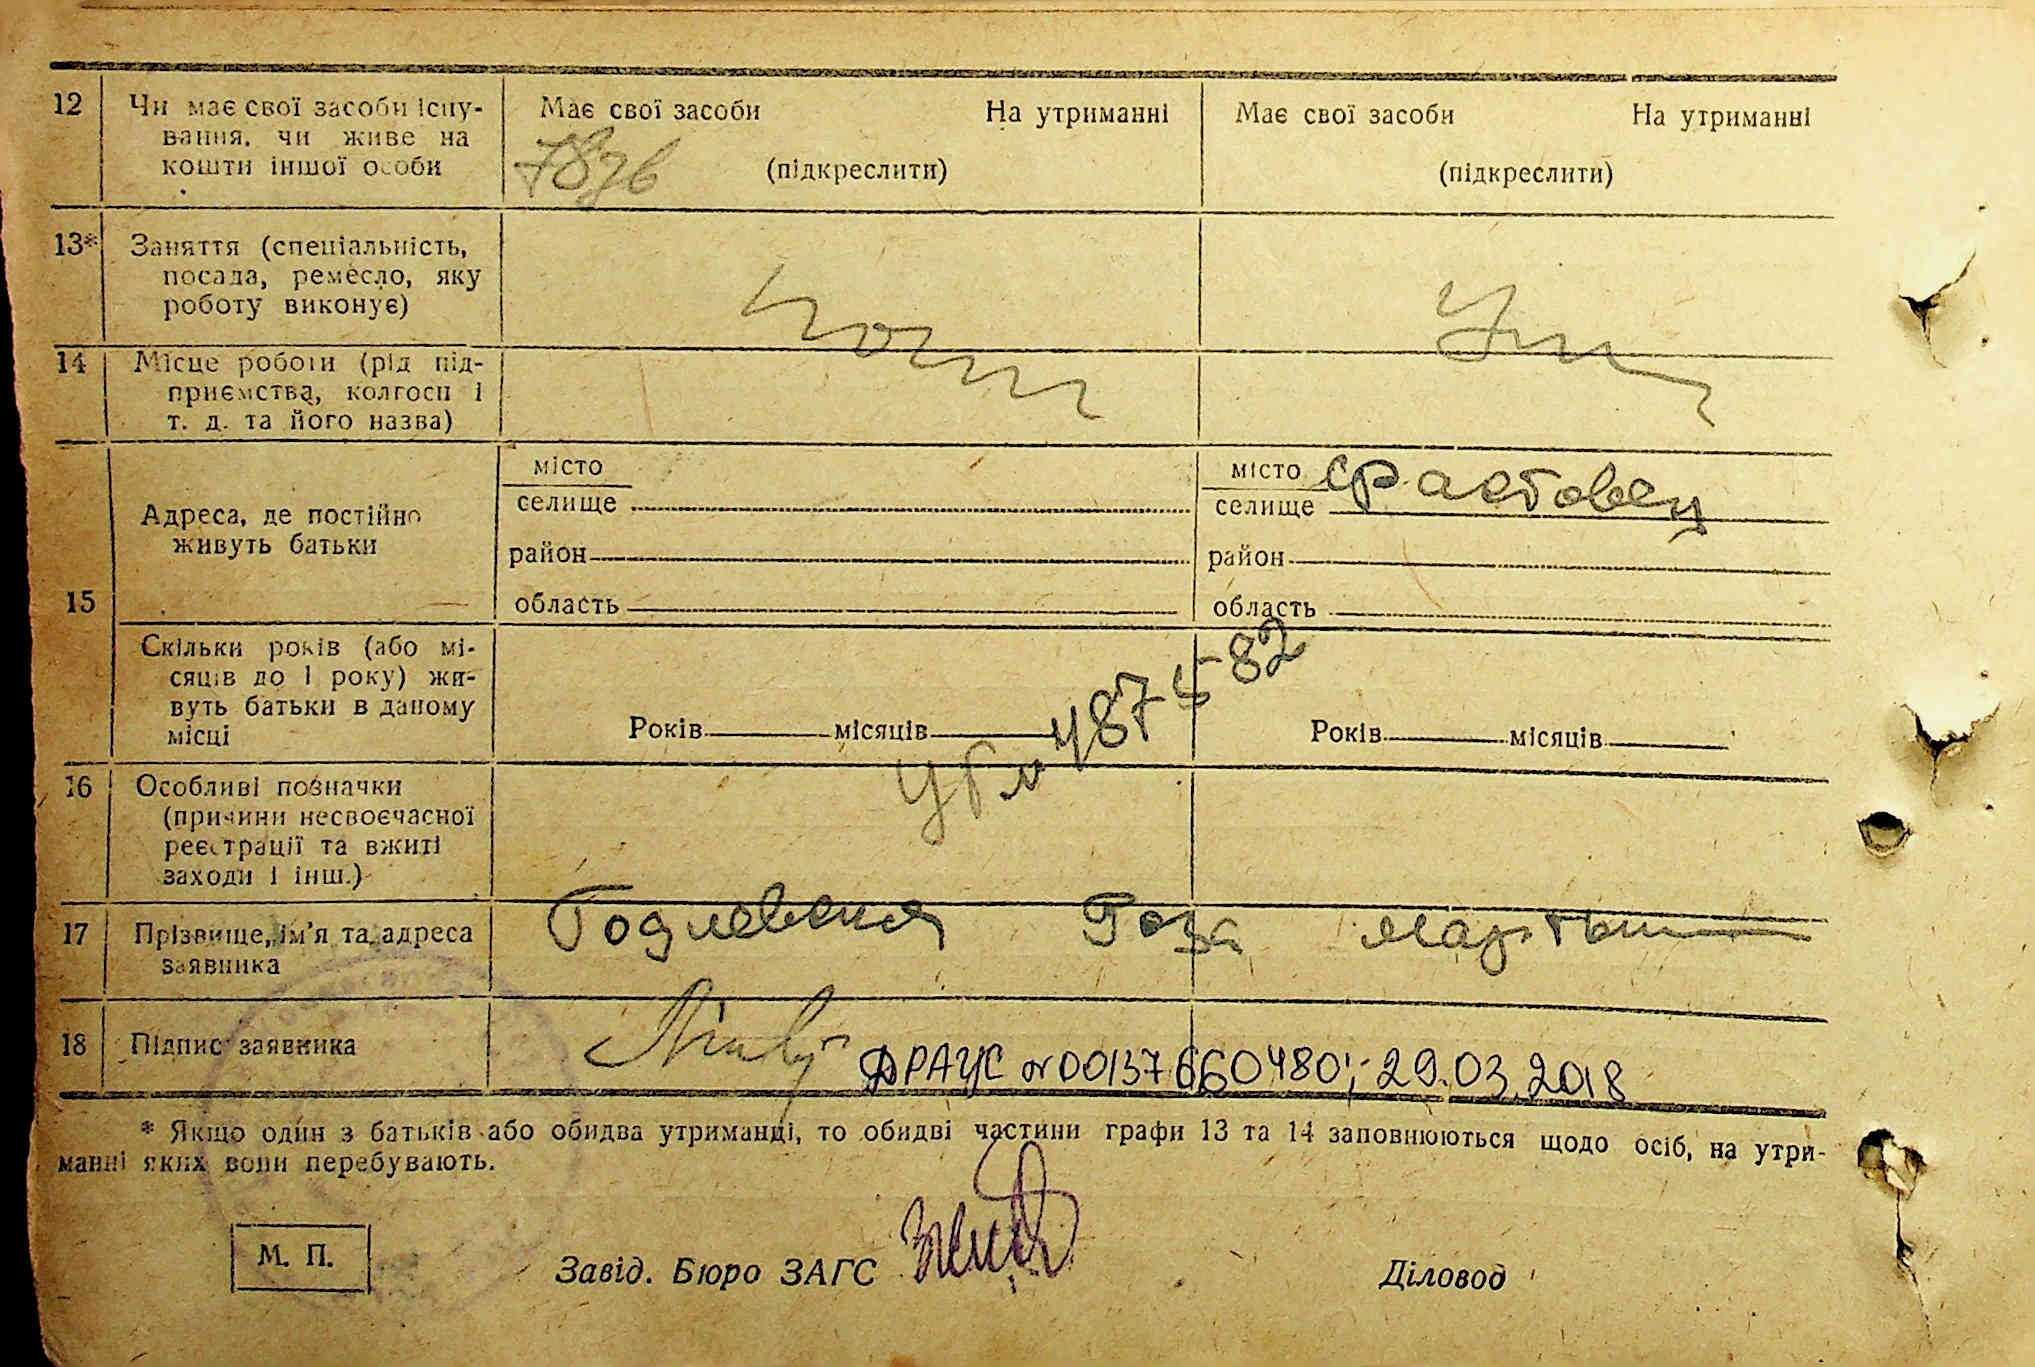 12 Чи має свої засоби існу-
вання, чи живе на
кошти іншої особи
Має свої засоби На утриманні
(підкреслити)
Має свої засоби На утриманні
(підкреслити)
13* Заняття (спеціальність,
посада, ремесло, яку
роботу виконує)
14 Місце роботи (рід під-
приємства, колгосп і
т. д. та його назва)
15 Адреса, де постійно
живуть батьки
місто
селище
район
область
місто
селище
район
область
Скільки років (або мі-
сяців до 1 року) жи-
вуть батьки в даному
місці
Років місяців
Років місяців
487582
16 Особливі позначки
(причини несвоєчасної
реєстрації та вжиті
заходи і інш.)
17 Прізвище, ім'я та адреса
заявника
Годлевская Роза
18 Підпис заявника
ДРАЦС №00137660480; 29.03.2018
* Якщо один з батьків або обидва утриманці, то обидві частини графи 13 та 14 заповнюються щодо осіб, на утри-
манні яких вони перебувають.
М. П.
Завід. Бюро ЗАГС
Діловод